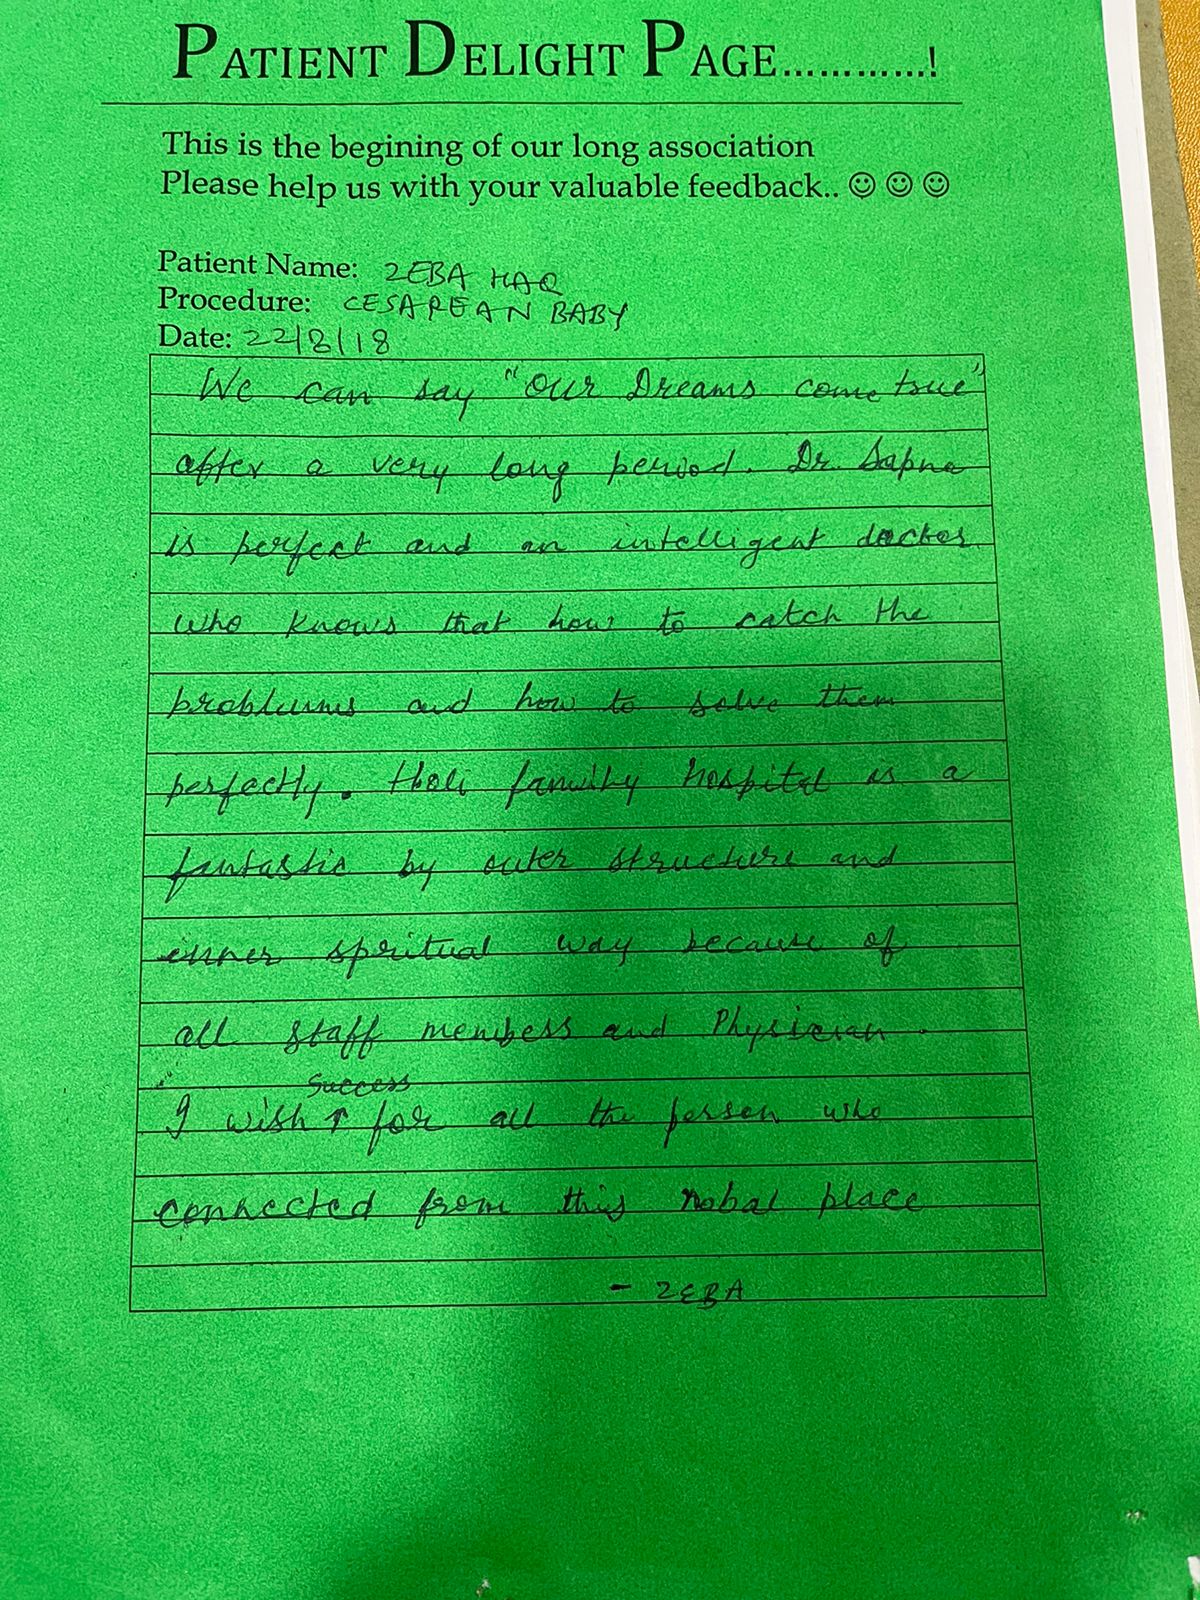 PATIENT DELIGHT PAGE............!
This is the begining of our long association
Please help us with your valuable feedback.. ☺ ☺ ☺
Patient Name: ZEBA HAQ
Procedure: CESAREAN BABY
Date: 22/8/18
We can say "Our Dreams come true"
after a very long period. Dr. Sapna
is perfect and an intelligent doctor
who knows that how to catch the
problums and how to solve them
perfectly. Holi family hospital is a
fantastic by outer structure and
inner spritual way because of
all staff members and Physician.
I wish success for all the person who
connected from this nobal place
- ZEBA